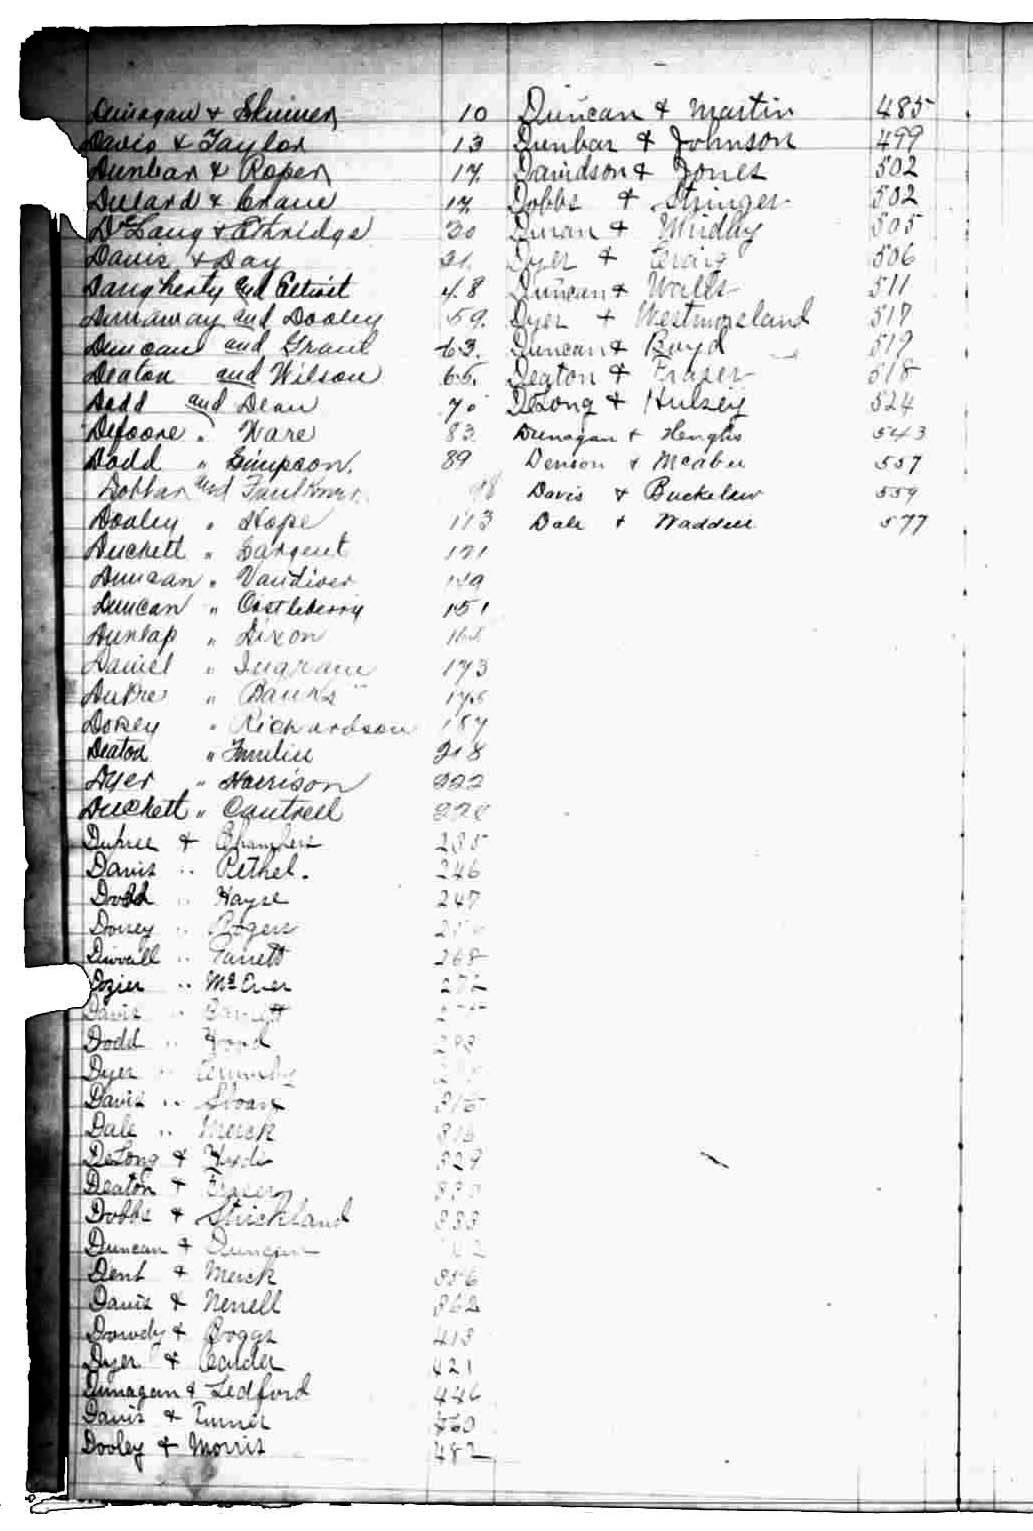 Dunagan & Skinner 10
Davis & Taylor 13
Dunbar & Roper 17.
Dillard & Crane 17.
& Ethridge 30
Davis & Day 31.
Daugherty and 48
Dunaway and Dooley 59.
Duncan and Grant 63.
Deaton and Wilson 65.
Dodd and Dean 70
Defoore " Ware 83
Dodd " Simpson. 89
and Faulkner
Dooley " Hope 113
Duckett " Sargent 121
Duncan " Vandiver
Duncan " Castleberry 151
Dunlap " Dixon
Daniel " Ingram 173
DuPre " Banks
Dorsey " Richardson 187
Deaton " 218
Dyer " Harrison 222
Duckett " Cantrell
Dupree & Chambers 235
Davis " Bethel. 246
Dodd " Hayse 247
Dorsey " Rogers
" Garrett 268
Dozier " McEver 272
Davis " Barrett
Dodd " 293
Dyer "
Davis " Sloan 315
Dale " Merck
DeLong & Hyde 329
Deaton & Frazer
Dobbs & Strickland 333
Duncan & Duncan
Dent & Merck 356
Davis & Nerrell 362
Dowdy & Boggs 413
Dyer & 421
Dunagan & Ledford 446
Davis & Turner 460
Dooley & Morris 482
Duncan & Martin 485
Dunbar & Johnson 499
Davidson & Jones 502
Dobbs & Stringer 502
Duran & 505
Dyer & Craig 506
Duncan & Walls 511
Dyer & Westmoreland 517
Duncan & Boyd 519
Deaton & Frazer 518
DeLong & Hulsey 524
Dunagan & 543
Denson & McAbee 557
Davis & Buckelew 559
Dale & Waddell 577